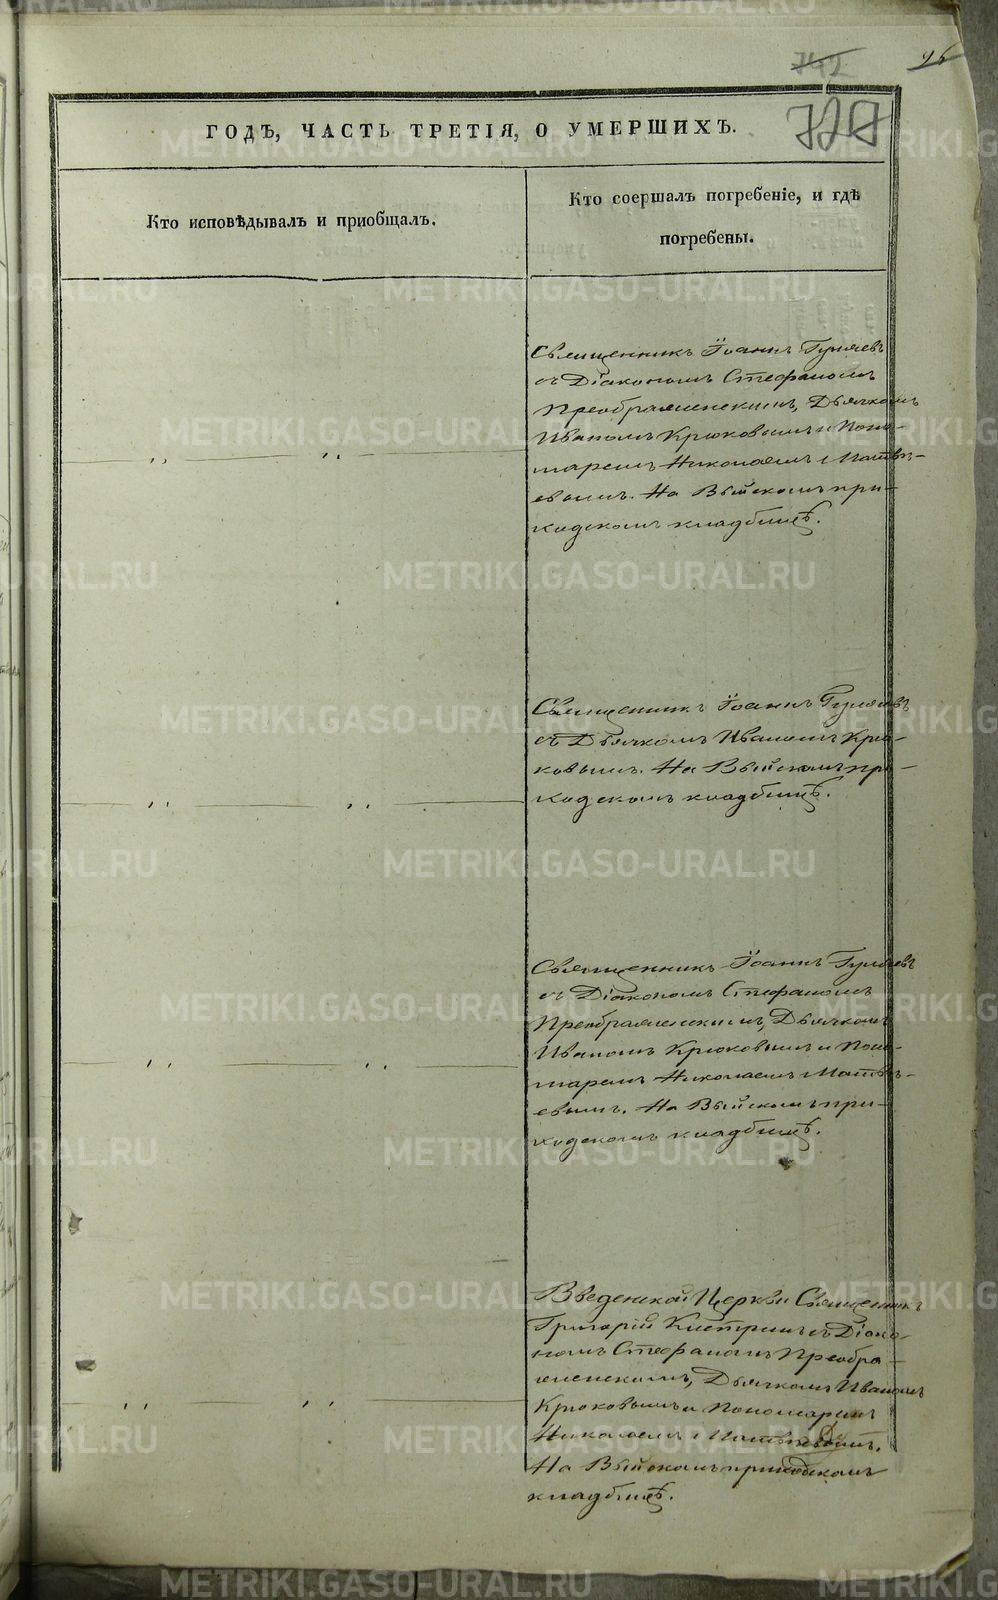 METRIKI.GASO-URAL.RU
742
96
729
ГОДѢ, ЧАСТЬ ТРЕТІЯ, О УМЕРШИХЪ.
Кто исповѣдывалъ и приобщалъ.
Кто соершалъ погребеніе, и гдѣ
погребены.
Священникъ Іоаннъ Гуляевъ
съ Діакономъ Стефаномъ
Преображенскимъ, Дьячкомъ
Иваномъ Крюковымъ и Поно-
маремъ Николаемъ Матвѣ-
евымъ. На Выйскомъ при-
ходскомъ кладбищѣ.
Священникъ Іоаннъ Гуляевъ
съ Дьячкомъ Иваномъ Крю-
ковымъ. На Выйскомъ при-
ходскомъ кладбищѣ.
Священникъ Іоаннъ Гуляевъ
съ Діакономъ Стефаномъ
Преображенскимъ, Дьячкомъ
Иваномъ Крюковымъ и Поно-
маремъ Николаемъ Матвѣ-
евымъ. На Выйскомъ при-
ходскомъ кладбищѣ.
Введенской Церкви Священникъ
Григорій съ Діако-
номъ Стефаномъ Преобра-
женскимъ, Дьячкомъ Иваномъ
Крюковымъ и Пономаремъ
Николаемъ Матвѣевымъ.
На Выйскомъ приходскомъ
кладбищѣ.